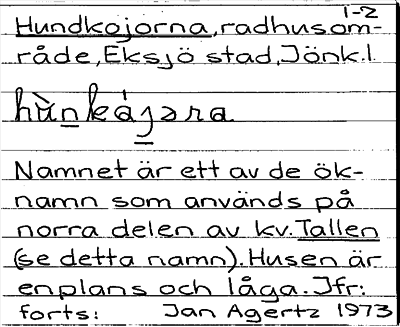 1-2
Hundkojorna, radhusom-
råde, Eksjö stad, Jönk.l.
hùnkájɔra
Namnet är ett av de ök-
namn som används på
norra delen av kv. Tallen
(se detta namn). Husen är
enplans och låga. Jfr:
forts: Jan Agertz 1973